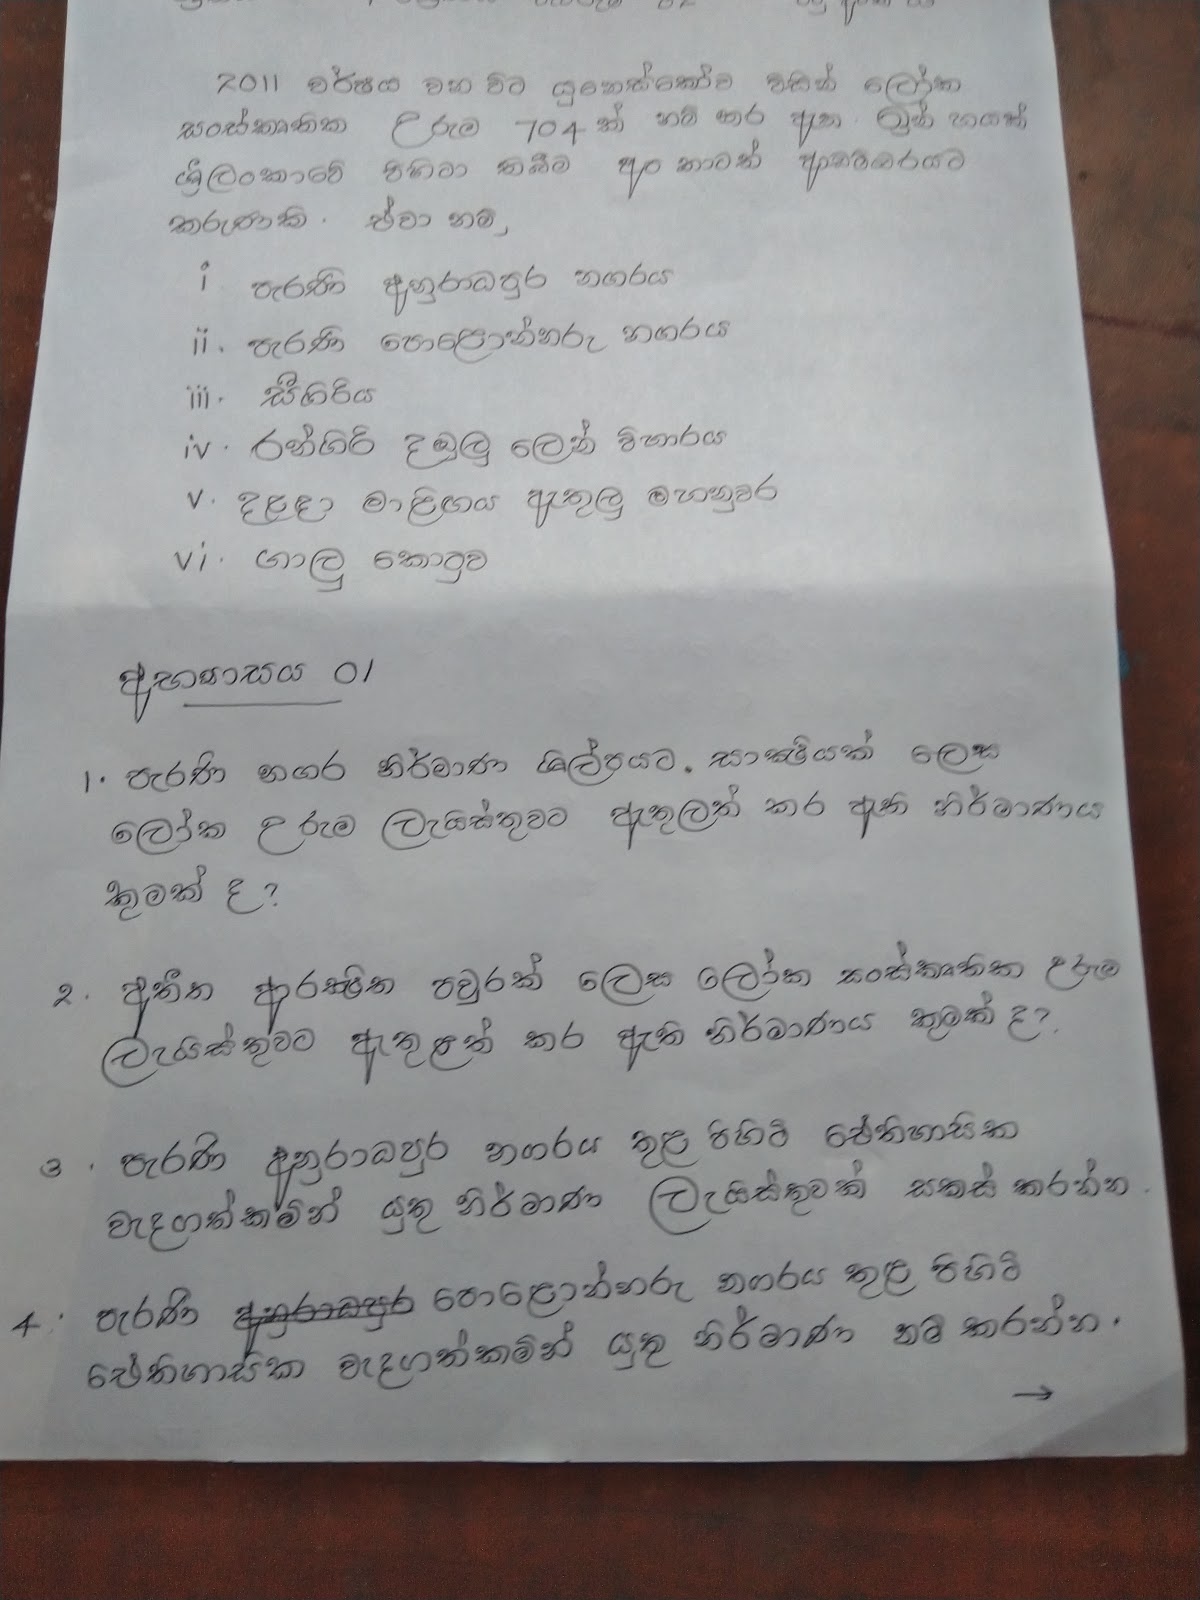 2011 වර්ෂය වන විට යුනෙස්කෝව විසින් ලෝක
සංස්කෘතික උරුම 704ක් නම් කර ඇත. ඉන් හයක්
ශ්‍රීලංකාවේ පිහිටා තිබීම අප කාටත් ආඩම්බරයට
කරුණකි. ඒවා නම්,
i පැරණි අනුරාධපුර නගරය
ii. පැරණි පොළොන්නරු නගරය
iii. සීගිරිය
iv. රන්ගිරි දඹුලු ලෙන් විහාරය
v. දළදා මාළිගය ඇතුලු මහනුවර
vi. ගාලු කොටුව
අභ්‍යාසය 01
1. පැරණි නගර නිර්මාණ ශිල්පයට. සාක්ෂියක් ලෙස
ලෝක උරුම ලැයිස්තුවට ඇතුලත් කර ඇති නිර්මාණය
කුමක් ද?
2. අතීත ආරක්ෂිත පවුරක් ලෙස ලෝක සංස්කෘතික උරුම
ලැයිස්තුවට ඇතුළත් කර ඇති නිර්මාණය කුමක් ද?
3. පැරණි අනුරාධපුර නගරය තුළ පිහිටි ඓතිහාසික
වැදගත්කමින් යුතු නිර්මාණ ලැයිස්තුවක් සකස් කරන්න.
4. පැරණි අනුරාධපුර පොළොන්නරු නගරය තුළ පිහිටි
ඓතිහාසික වැදගත්කමින් යුතු නිර්මාණ නම් කරන්න.
→